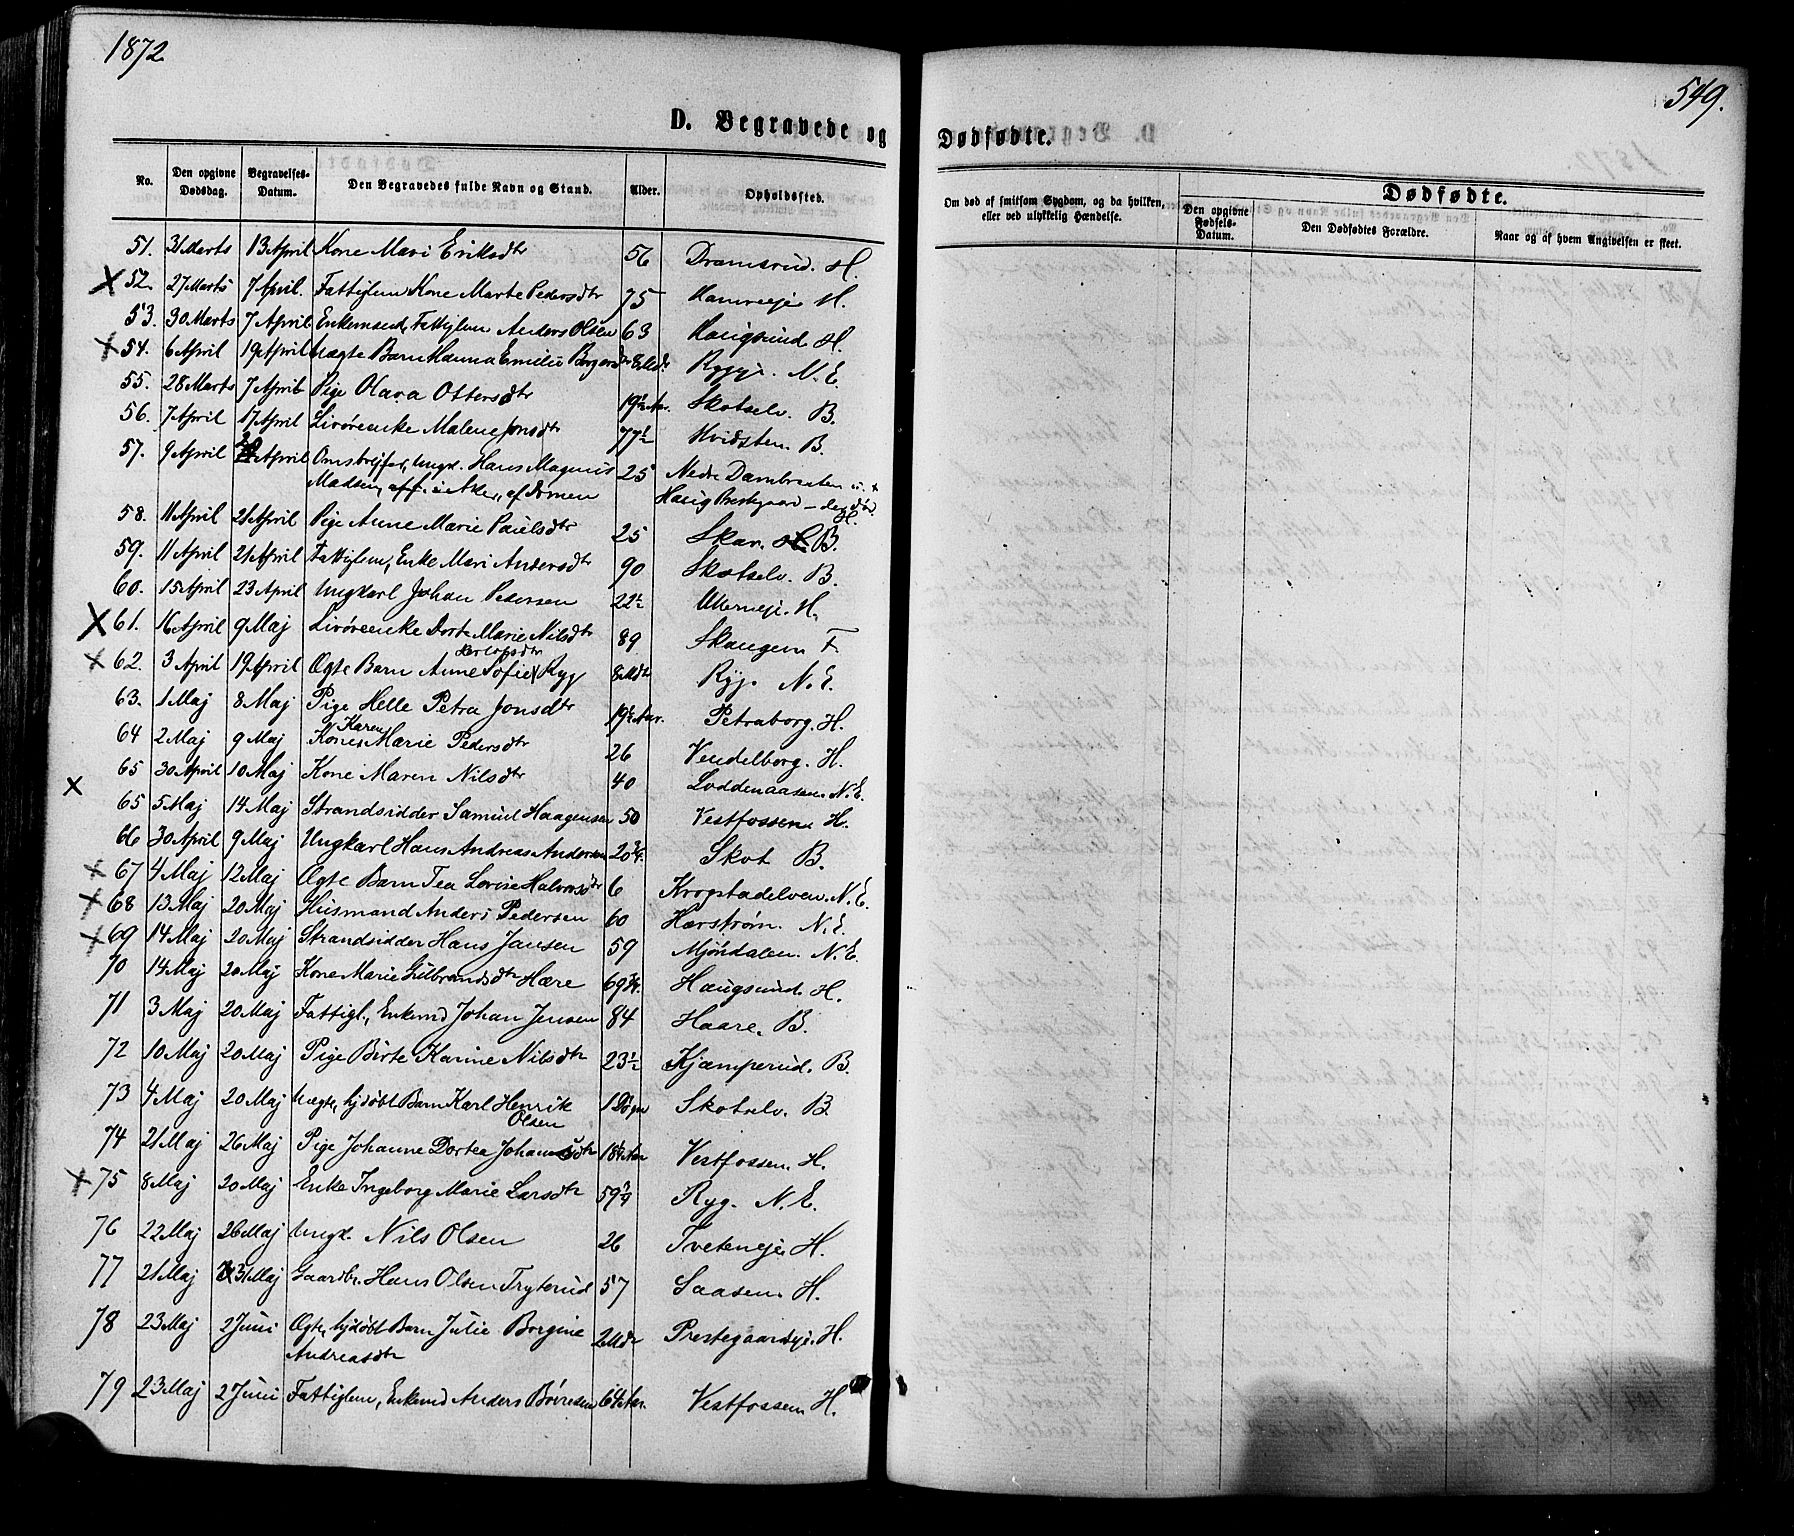 1872.
549.
D. Begravede og Dødfødte.
No. Den opgivne Dødsdag. Begravelses-Datum. Den Begravedes fulde Navn og Stand. Alder. Opholdssted.
Om død af smitsom Sygdom, og da hvilken, eller ved ulykkelig Hændelse.
Dødfødte.
Den opgivne Fødsels-Datum. Den Dødfødtes Forældre. Naar og af hvem Angivelsen er skeet.
51. 31 Marts 13 April Kone Mari Eriksdtr 56 Dramsrud. H.
X 52. 27 Marts 7 April. Fattiglem Kone Marte Pedersdtr 75 H.
53. 30 Marts 7 April Enkemand, Fattiglem Anders Olsen 63 Haugsund H.
X 54. 6 April 19 April Uægte Barn Hanna Emilie 8 Mdr N. E.
55. 28 Marts 7 April Pige Olava Ottersdtr 19½ Aar. Skotselv. B.
56. 7 April 17 April Livøreenke Malene Jonsdtr 77½ Hvidsten B.
57. 9 April April Ungk. Hans Magnus 25 Nedre Dambraaten
Madsen, af Haug Prestegaard H.
58. 11 April 21 April Pige Anne Marie Paulsdtr 25 Skar. B.
59. 11 April 21 April Fattiglem, Enke Mari Andersdtr 90 Skotselv. B.
60. 15 April 23 April Ungkarl Johan Pedersen 22½ H.
X 61. 16 April 9 Maj Livøreenke Dorte Marie Nilsdtr 89 Skaugen F.
X 62. 3 April 19 April Ægte Barn Anne Sofie Ryg 8 Mdr Ryg. N. E.
63. 1 Maj 8 Maj Pige Helle Petra Jonsdtr 19½ Aar. Petraborg. H.
64 2 Maj 9 Maj Kone Karen Marie Pedersdtr 26 Vendelborg. H.
X 65 30 April 10 Maj Kone Maren Nilsdtr 40 Loddenaasen N. E.
65 5 Maj 14 Maj Strandsidder Samuel Haagensen 50 Vestfossen H.
66 30 April 9 Maj Ungkarl Hans Andreas Andersen 20¾. Skot B.
X 67 4 Maj 12 Maj Ægte Barn Tea Lovise Halvorsdtr 6 Krogstadelven. N. E.
X 68 13 Maj 20 Maj Husmand Anders Pedersen 60 Hærstrøm. N. E.
X 69 14 Maj 20 Maj Strandsidder Hans Jansen 59 Mjøndalen. N. E.
70 14 Maj 20 Maj Kone Marie Gulbrandsdtr Hære 69¾. Haugsund. H.
71 3 Maj 20 Maj Fattigl., Enkemd Johan Jensen 84 Haare. B.
72 10 Maj 20 Maj Pige Birte Karine Nilsdtr 23½ Kjæmperud. B.
73 4 Maj 20 Maj Uægte, hjdøbt Barn Karl Henrik 1 Døgn Skotselv. B
Olsen
74 21 Maj 26 Maj Pige Johanne Dortea Johansdtr 18¼ Aar Vestfossen. H.
X 75 8 Maj 20 Maj Enke Ingeborg Marie Larsdtr 59 Ryg. N. E.
76 22 Maj 26 Maj Ungk. Nils Olsen 26 Tveteneje H.
77 21 Maj 31 Maj Gaardbr. Hans Olsen Tryterud 57 Saasen H.
78 23 Maj 2 Juni Ægte, hjdøbt Barn Julie Borgine 2 Mdr Prestegaardsej. H.
Andreasdtr
79 23 Maj 2 Juni Fattiglem, Enkemd Anders Børresen 64 Aar. Vestfossen H.